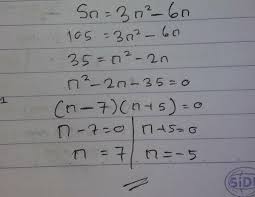 Sn = 3n² - 6n
105 = 3n² - 6n
35 = n² - 2n
n² - 2n - 35 = 0
1
(n - 7)(n + 5) = 0
n - 7 = 0 | n + 5 = 0
n = 7 | n = -5
SiDU